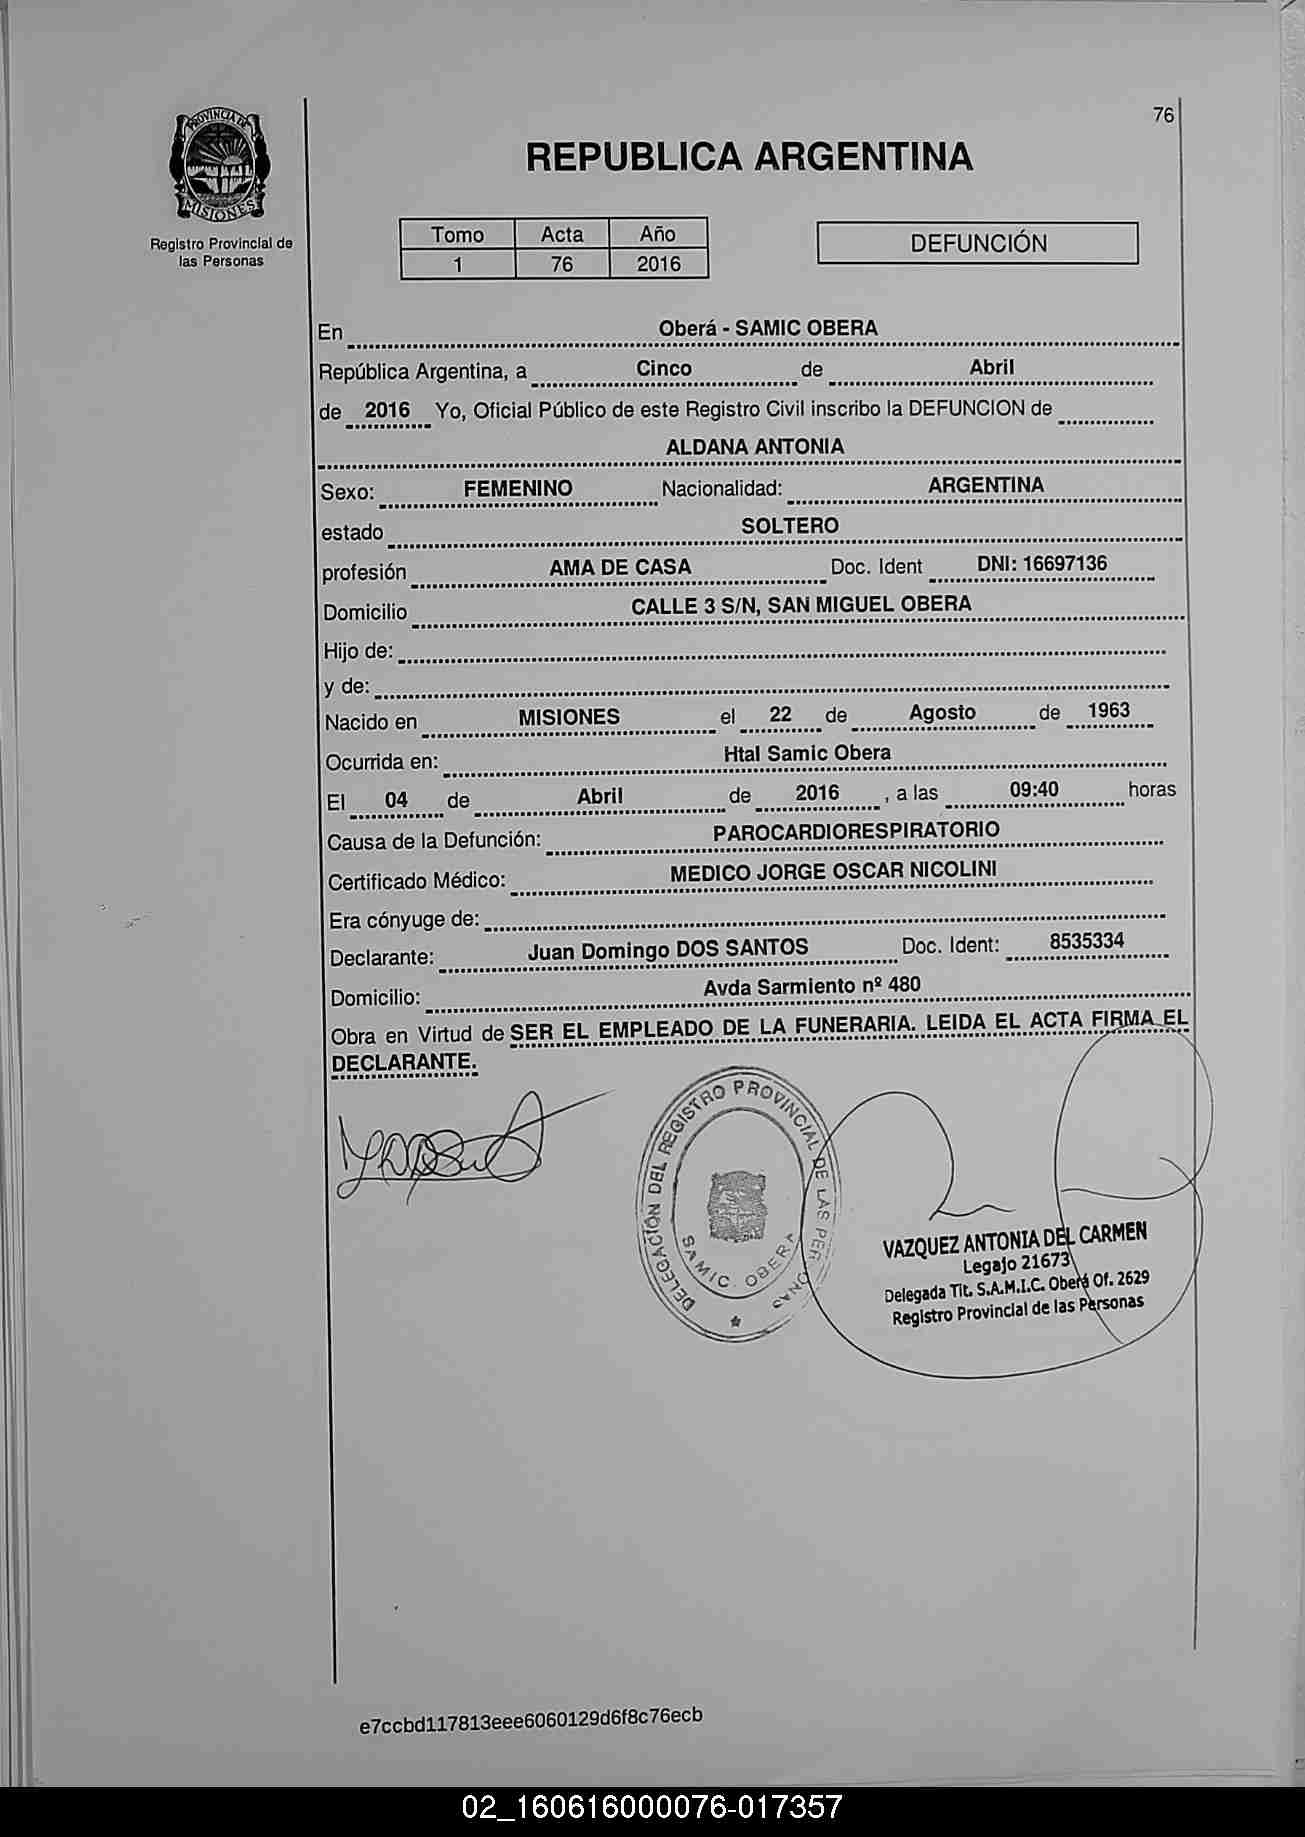 PROVINCIA DE
MISIONES
Registro Provincial de
las Personas
76
REPUBLICA ARGENTINA
Tomo Acta Año
1 76 2016
DEFUNCIÓN
En Oberá - SAMIC OBERA
República Argentina, a Cinco de Abril
de 2016 Yo, Oficial Público de este Registro Civil inscribo la DEFUNCION de
ALDANA ANTONIA
Sexo: FEMENINO Nacionalidad: ARGENTINA
estado SOLTERO
profesión AMA DE CASA Doc. Ident DNI: 16697136
Domicilio CALLE 3 S/N, SAN MIGUEL OBERA
Hijo de:
y de:
Nacido en MISIONES el 22 de Agosto de 1963
Ocurrida en: Htal Samic Obera
El 04 de Abril de 2016 , a las 09:40 horas
Causa de la Defunción: PAROCARDIORESPIRATORIO
Certificado Médico: MEDICO JORGE OSCAR NICOLINI
Era cónyuge de:
Declarante: Juan Domingo DOS SANTOS Doc. Ident: 8535334
Domicilio: Avda Sarmiento nº 480
Obra en Virtud de SER EL EMPLEADO DE LA FUNERARIA. LEIDA EL ACTA FIRMA EL
DECLARANTE.
DELEGACIÓN DEL REGISTRO PROVINCIAL DE LAS PER ONAS
SAMIC. OBERA
VAZQUEZ ANTONIA DEL CARMEN
Legajo 21673
Delegada Tit. S.A.M.I.C. Oberá Of. 2629
Registro Provincial de las Personas
e7ccbd117813eee6060129d6f8c76ecb
02_160616000076-017357